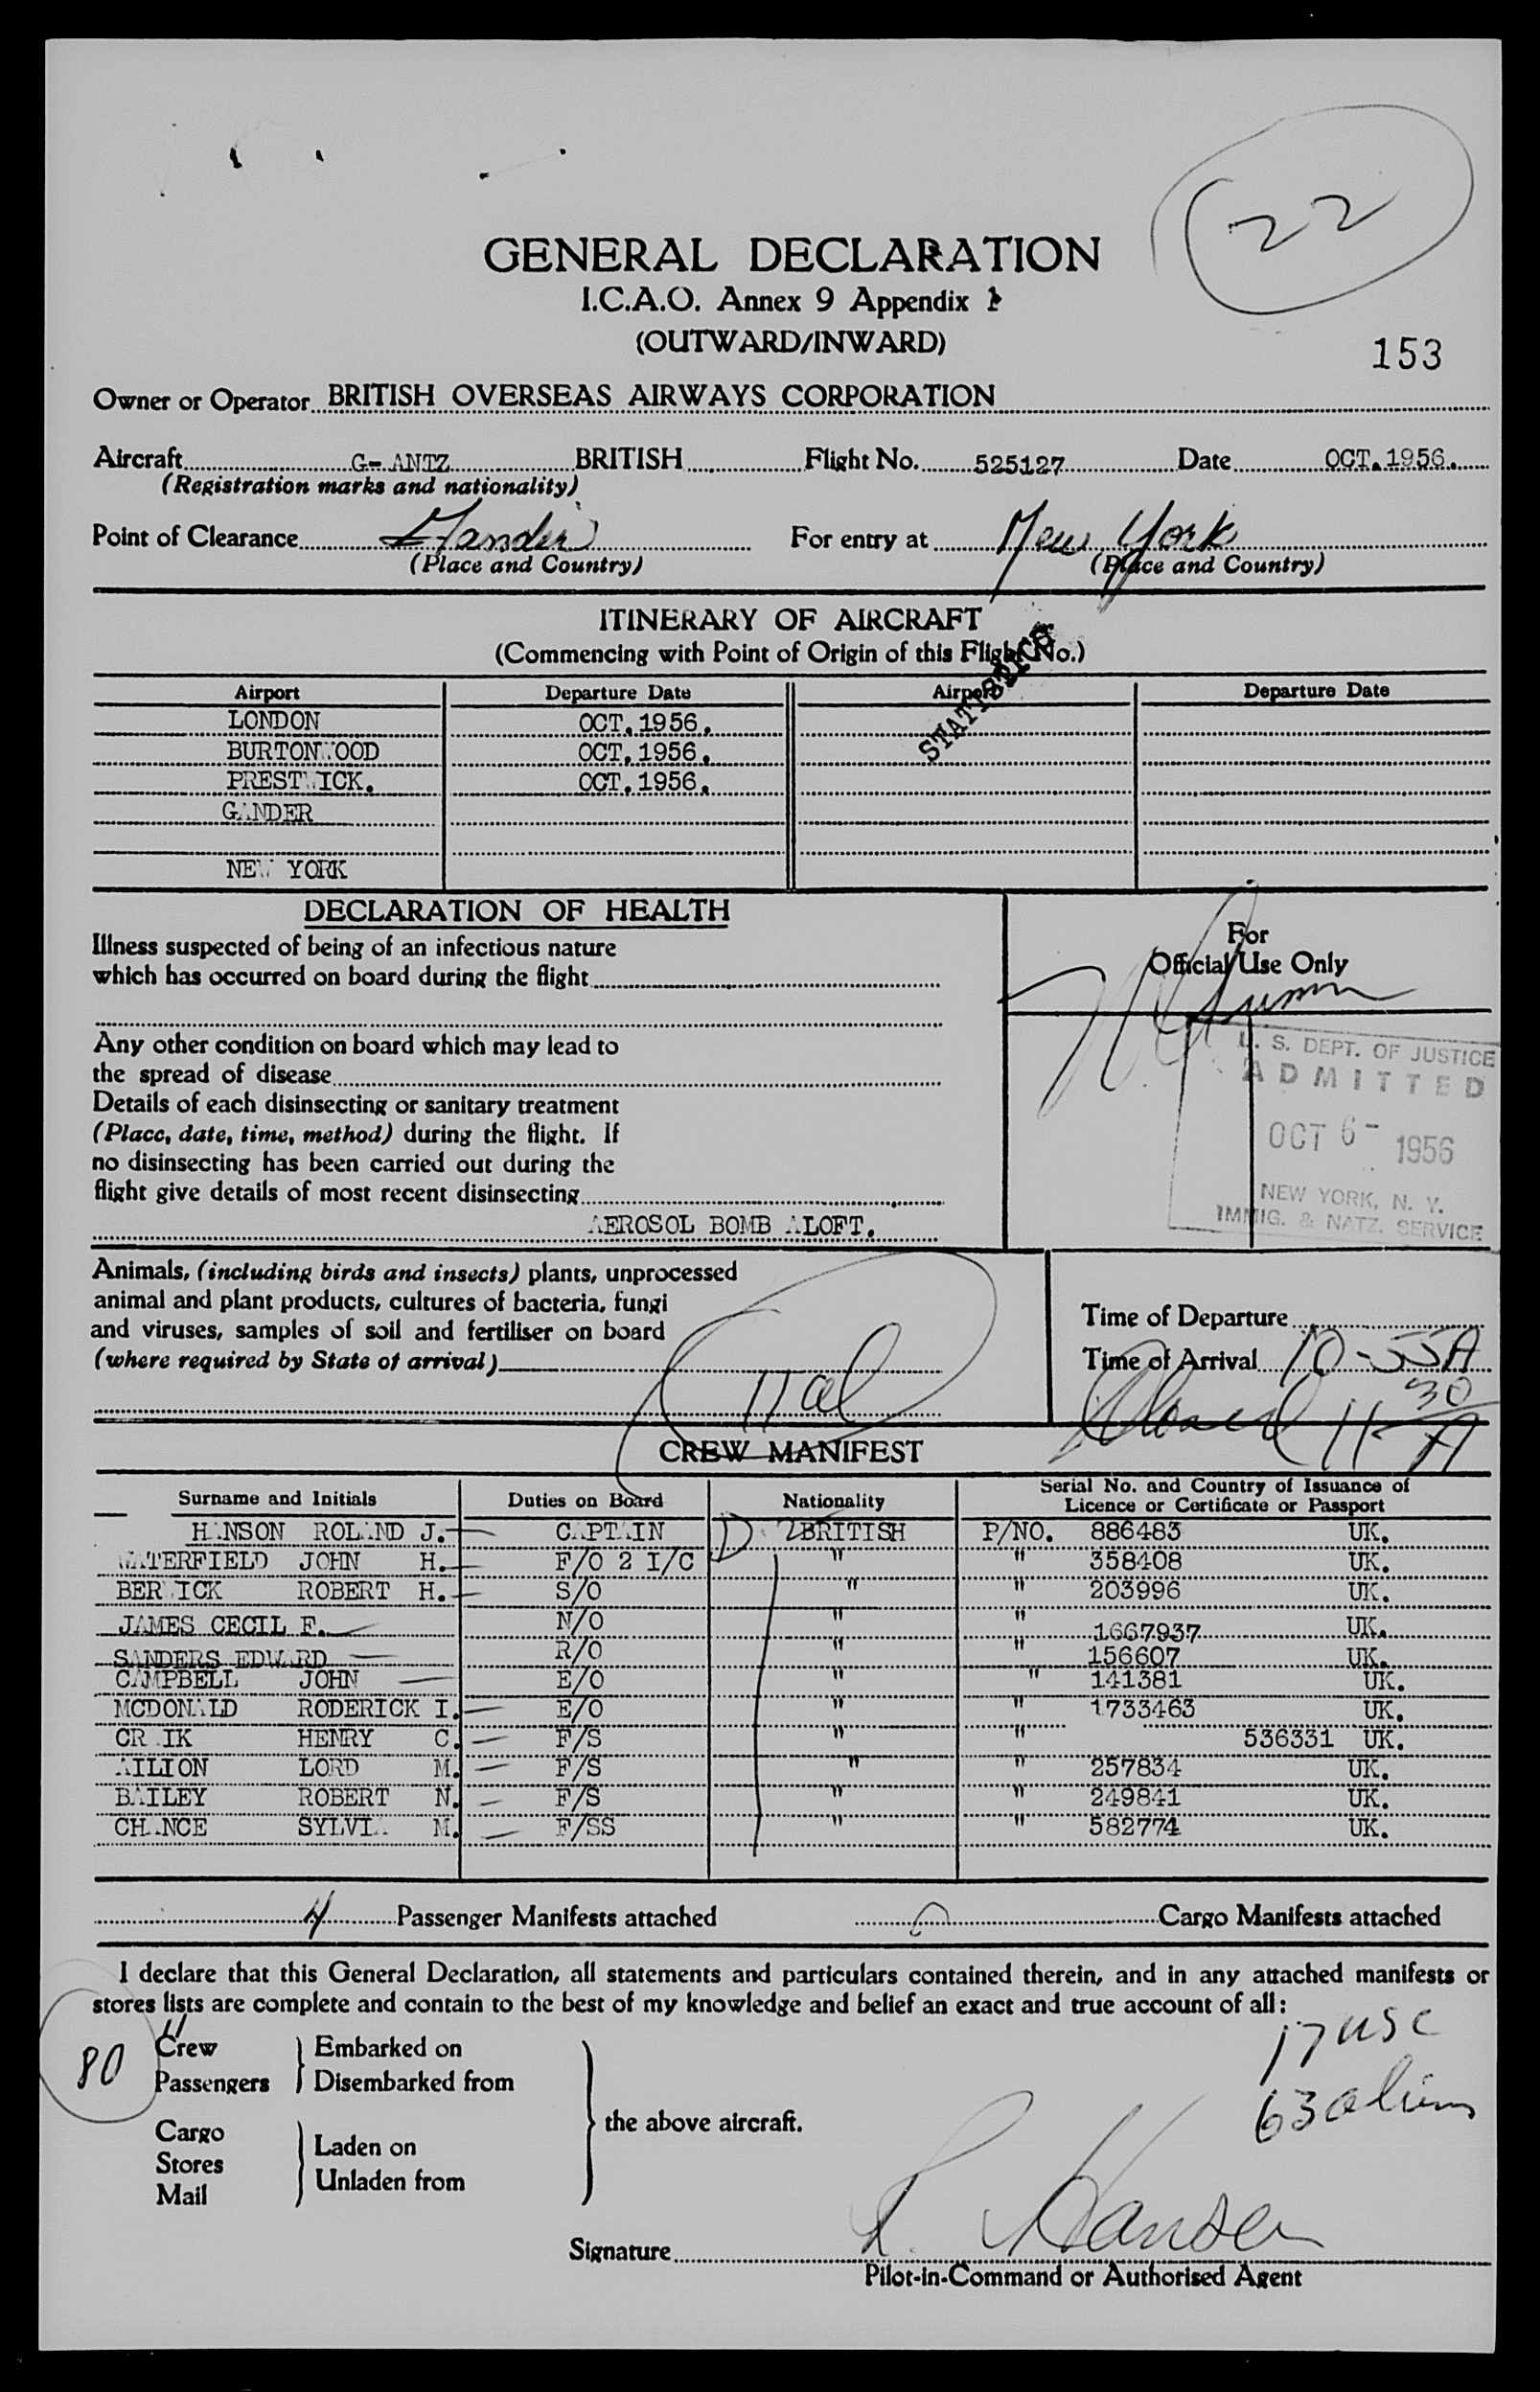 22
GENERAL DECLARATION
I.C.A.O. Annex 9 Appendix 1
(OUTWARD/INWARD)
153
Owner or Operator BRITISH OVERSEAS AIRWAYS CORPORATION
Aircraft G-ANTZ BRITISH Flight No. 525127 Date OCT.1956.
(Registration marks and nationality)
Point of Clearance Gander For entry at New York
(Place and Country) (Place and Country)
ITINERARY OF AIRCRAFT
(Commencing with Point of Origin of this Flight No.)
STATISTICS
Airport Departure Date Airport Departure Date
LONDON OCT.1956.
BURTONWOOD OCT.1956.
PRESTWICK. OCT.1956.
GANDER
NEW YORK
DECLARATION OF HEALTH
Illness suspected of being of an infectious nature
which has occurred on board during the flight
Any other condition on board which may lead to
the spread of disease
Details of each disinsecting or sanitary treatment
(Place, date, time, method) during the flight. If
no disinsecting has been carried out during the
flight give details of most recent disinsecting
AEROSOL BOMB ALOFT.
For
Official Use Only
U. S. DEPT. OF JUSTICE
ADMITTED
OCT 6 - 1956
NEW YORK, N. Y.
IMMIG. & NATZ. SERVICE
Animals, (including birds and insects) plants, unprocessed
animal and plant products, cultures of bacteria, fungi
and viruses, samples of soil and fertiliser on board
(where required by State of arrival)
Time of Departure
Time of Arrival 10-55A
11 30 A
CREW MANIFEST
Surname and Initials Duties on Board Nationality Serial No. and Country of Issuance of Licence or Certificate or Passport
HANSON ROLAND J. CAPTAIN BRITISH P/NO. 886483 UK.
WATERFIELD JOHN H. F/O 2 I/C " " 358408 UK.
BERWICK ROBERT H. S/O " " 203996 UK.
JAMES CECIL F. N/O " " 1667937 UK.
SANDERS EDWARD R/O " " 156607 UK.
CAMPBELL JOHN E/O " " 141381 UK.
MCDONALD RODERICK I. E/O " " 1733463 UK.
CRAIK HENRY C. F/S " " 536331 UK.
AILION LORD M. F/S " " 257834 UK.
BAILEY ROBERT N. F/S " " 249841 UK.
CHANCE SYLVIA M. F/SS " " 582774 UK.
4 Passenger Manifests attached 0 Cargo Manifests attached
I declare that this General Declaration, all statements and particulars contained therein, and in any attached manifests or
stores lists are complete and contain to the best of my knowledge and belief an exact and true account of all:
11
Crew Embarked on
80 Passengers Disembarked from
the above aircraft.
Cargo
Stores Laden on
Mail Unladen from
17 usc
63 aliens
Signature R. Hanson
Pilot-in-Command or Authorised Agent